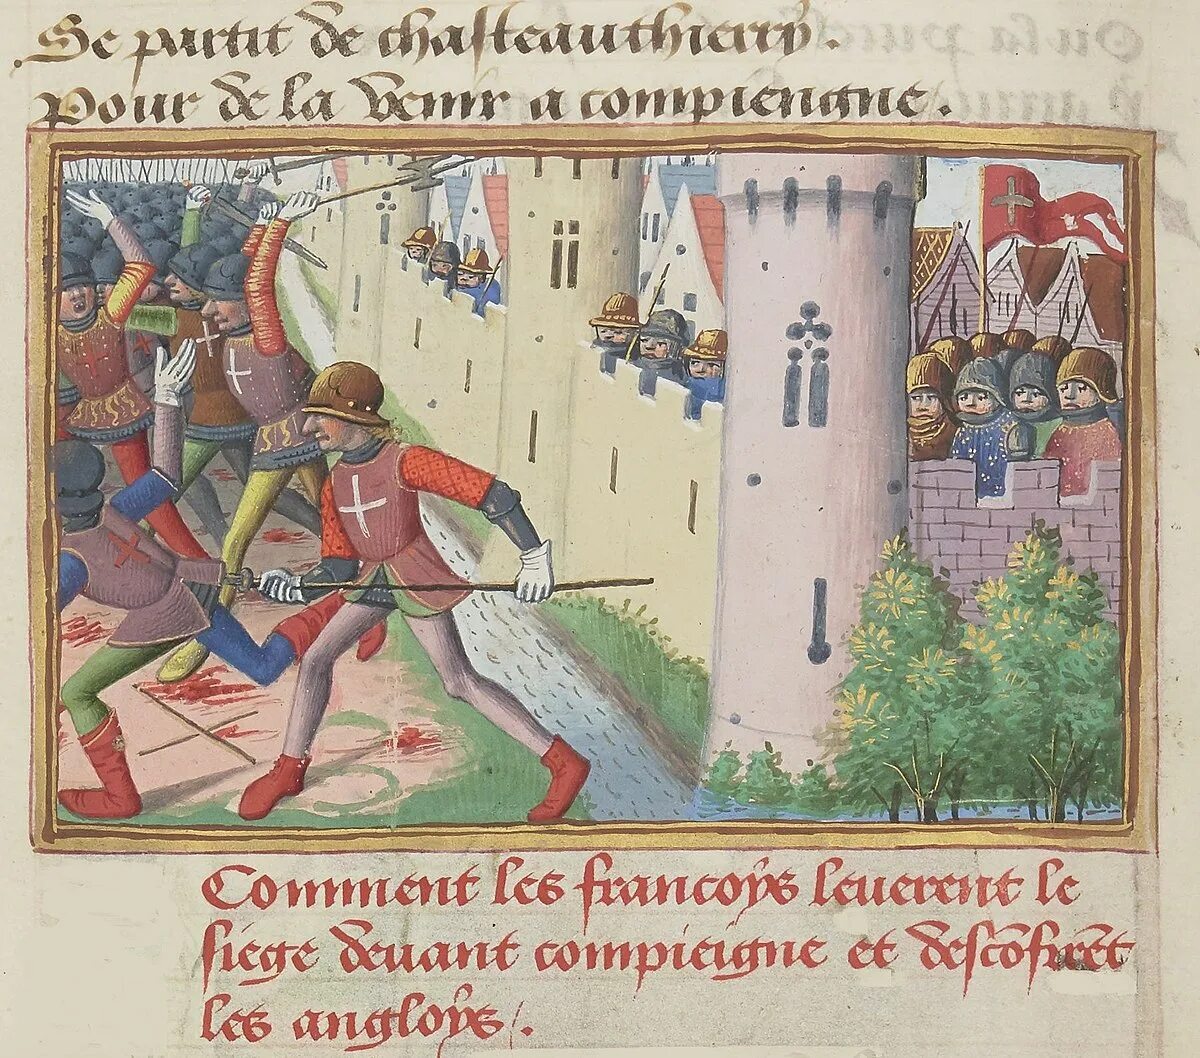 Se partit de chasteauthierry.
Pour de la venir a compiengne.
Comment les francoys leuerent le
siege deuant compieigne et descōfirēt
les angloys /.